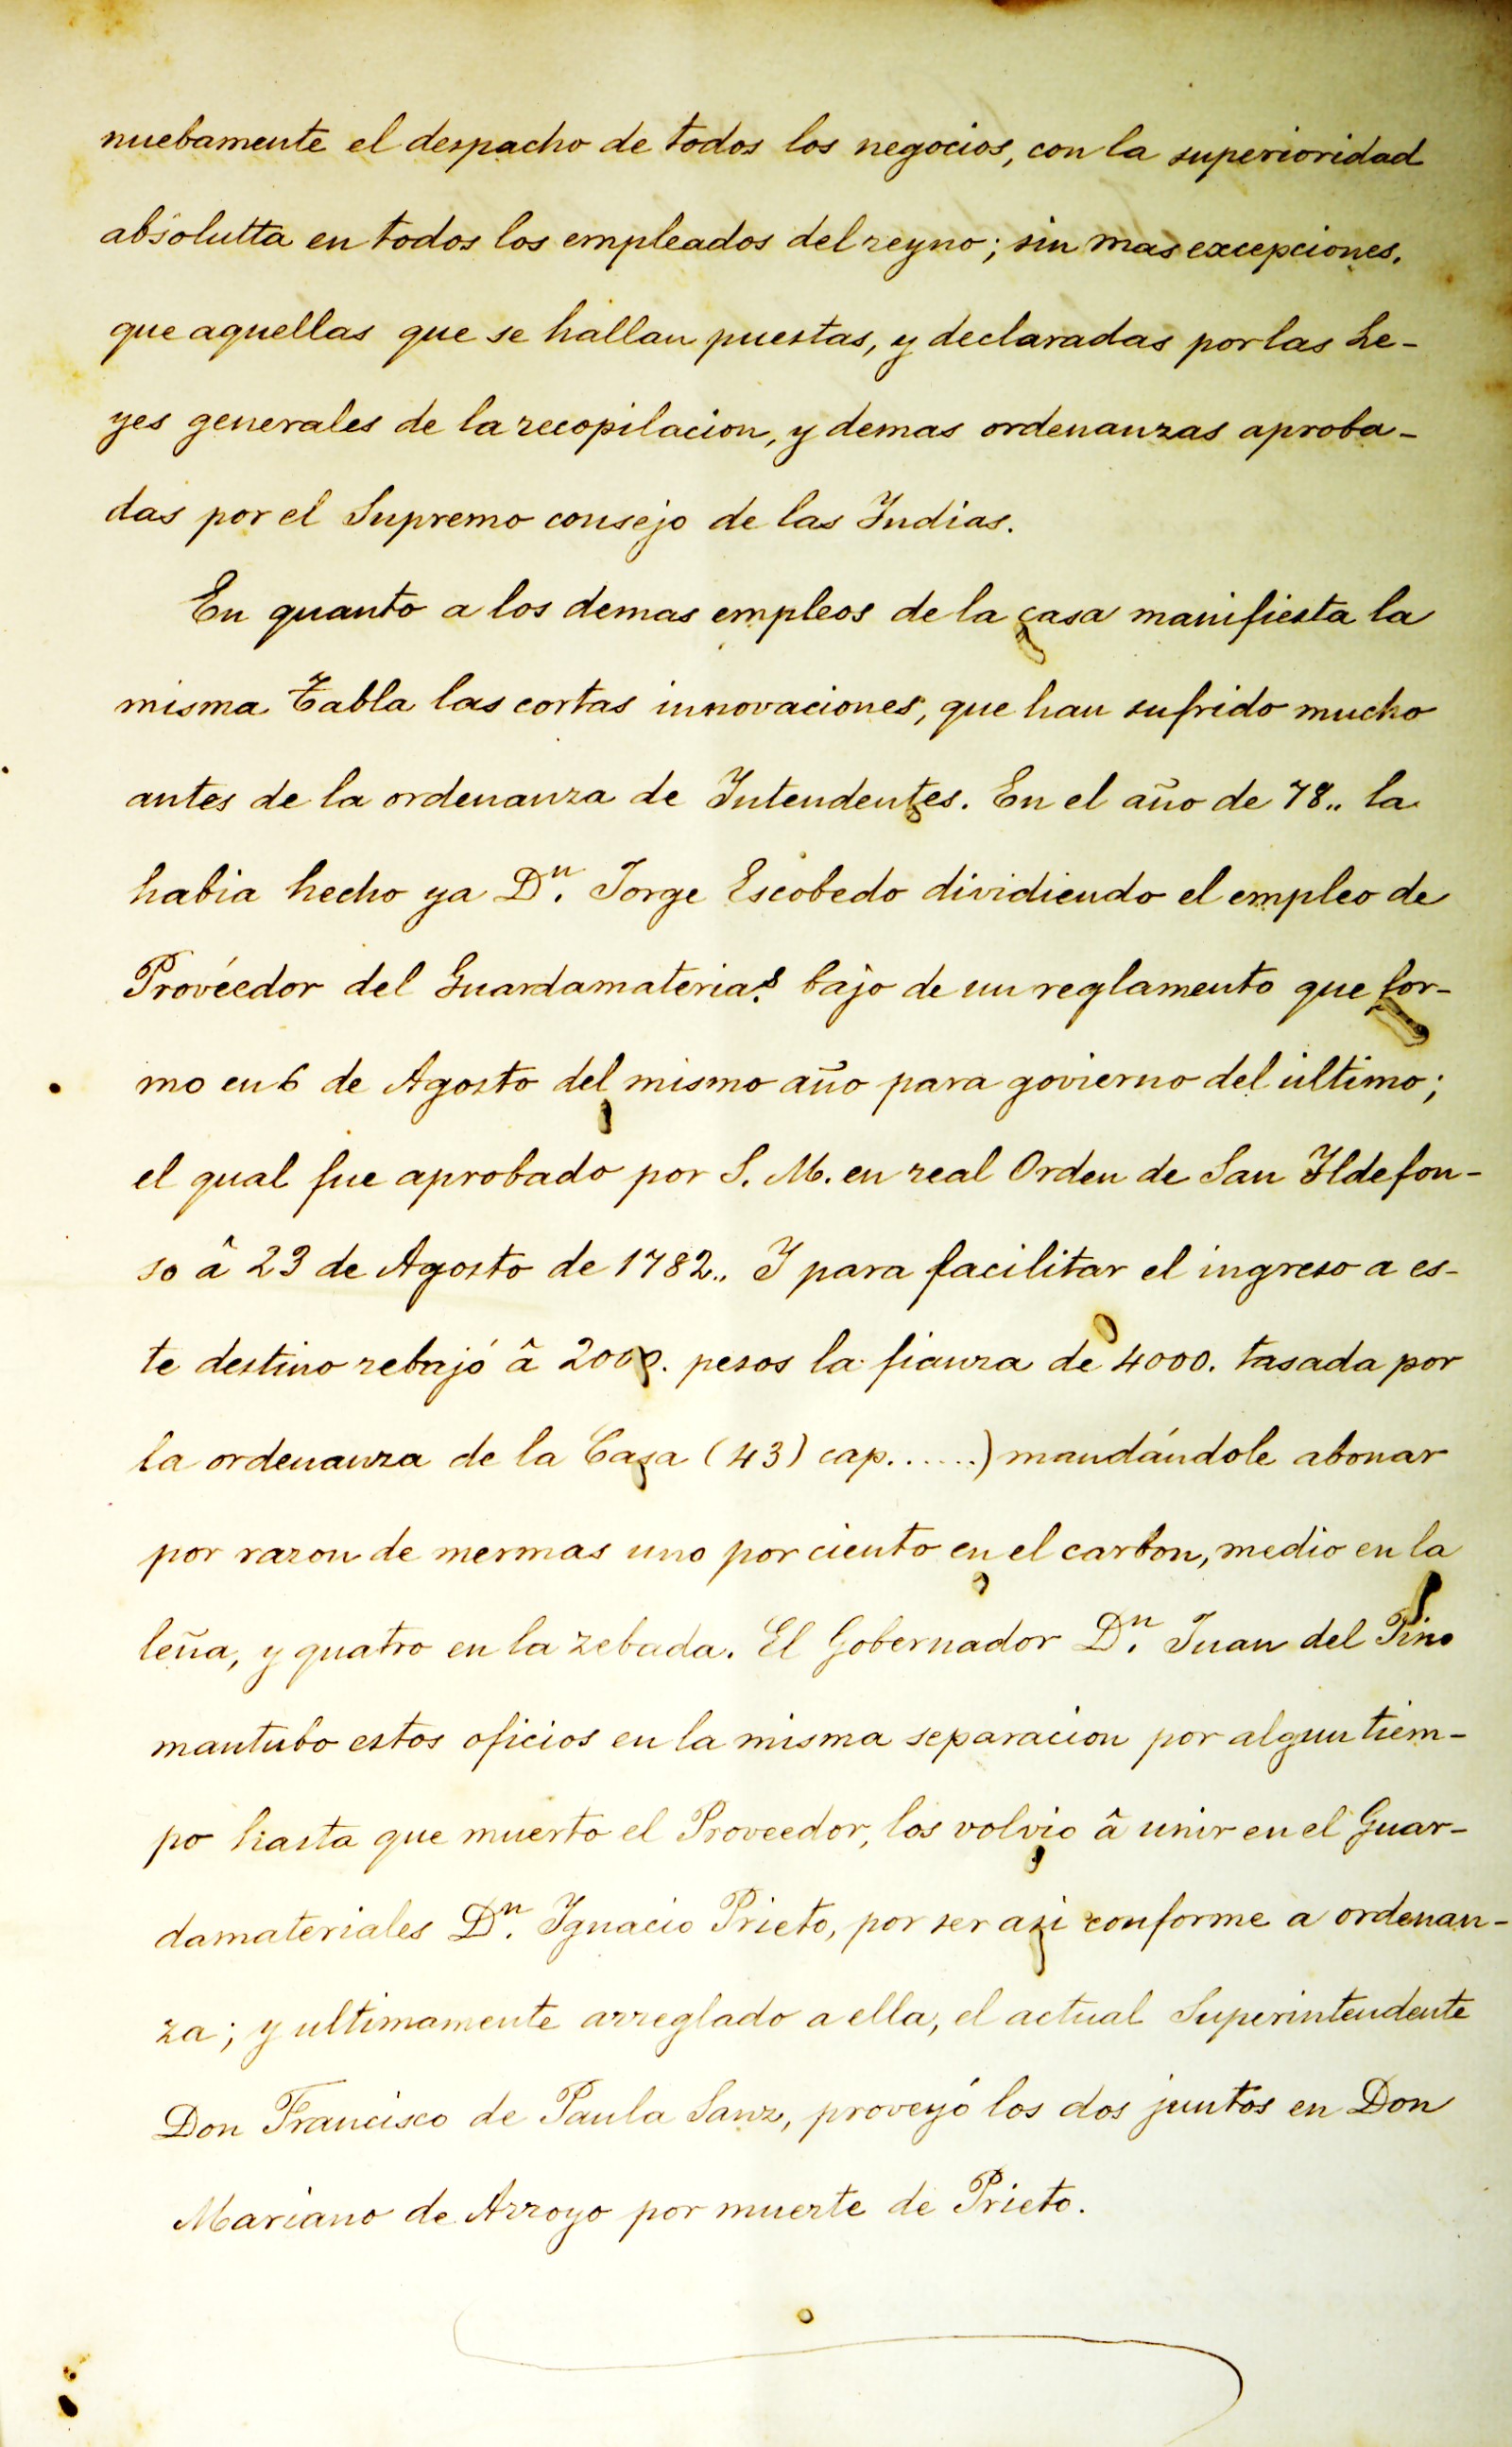 nuebamente el despacho de todos los negocios, con la superioridad
absolutta en todos los empleados del reyno; sin mas excepciones,
que aquellas que se hallan puestas, y declaradas por las Le-
yes generales de la recopilacion, y demas ordenanzas aproba-
das por el Supremo consejo de las Indias.
En quanto a los demas empleos de la casa manifiesta la
misma Tabla las cortas innovaciones, que han sufrido mucho
antes de la ordenanza de Intendentes. En el año de 78.. la
habia hecho ya Dn. Jorge Escobedo dividiendo el empleo de
Provéedor del Guardamateria.s bajo de un reglamento que for-
mo en 6 de Agosto del mismo año para govierno del ultimo;
el qual fue aprobado por S. M. en real Orden de San Ildefon-
so â 23 de Agosto de 1782.. I para facilitar el ingreso a es-
te destino rebajó â 2000. pesos la fianza de 4000. tasada por
la ordenanza de la Casa (43) cap. . . . . . .) mandándole abonar
por razon de mermas uno por ciento en el carbon, medio en la
leña, y quatro en la zebada. El Gobernador Dn. Juan del Pino
mantubo estos oficios en la misma separacion por algun tiem-
po hasta que muerto el Proveedor, los volvio â unir en el Guar-
damateriales Dn. Ignacio Prieto, por ser asi conforme a ordenan-
za; y ultimamente arreglado a ella, el actual Superintendente
Don Francisco de Paula Sanz, proveyó los dos juntos en Don
Mariano de Arroyo por muerte de Prieto.